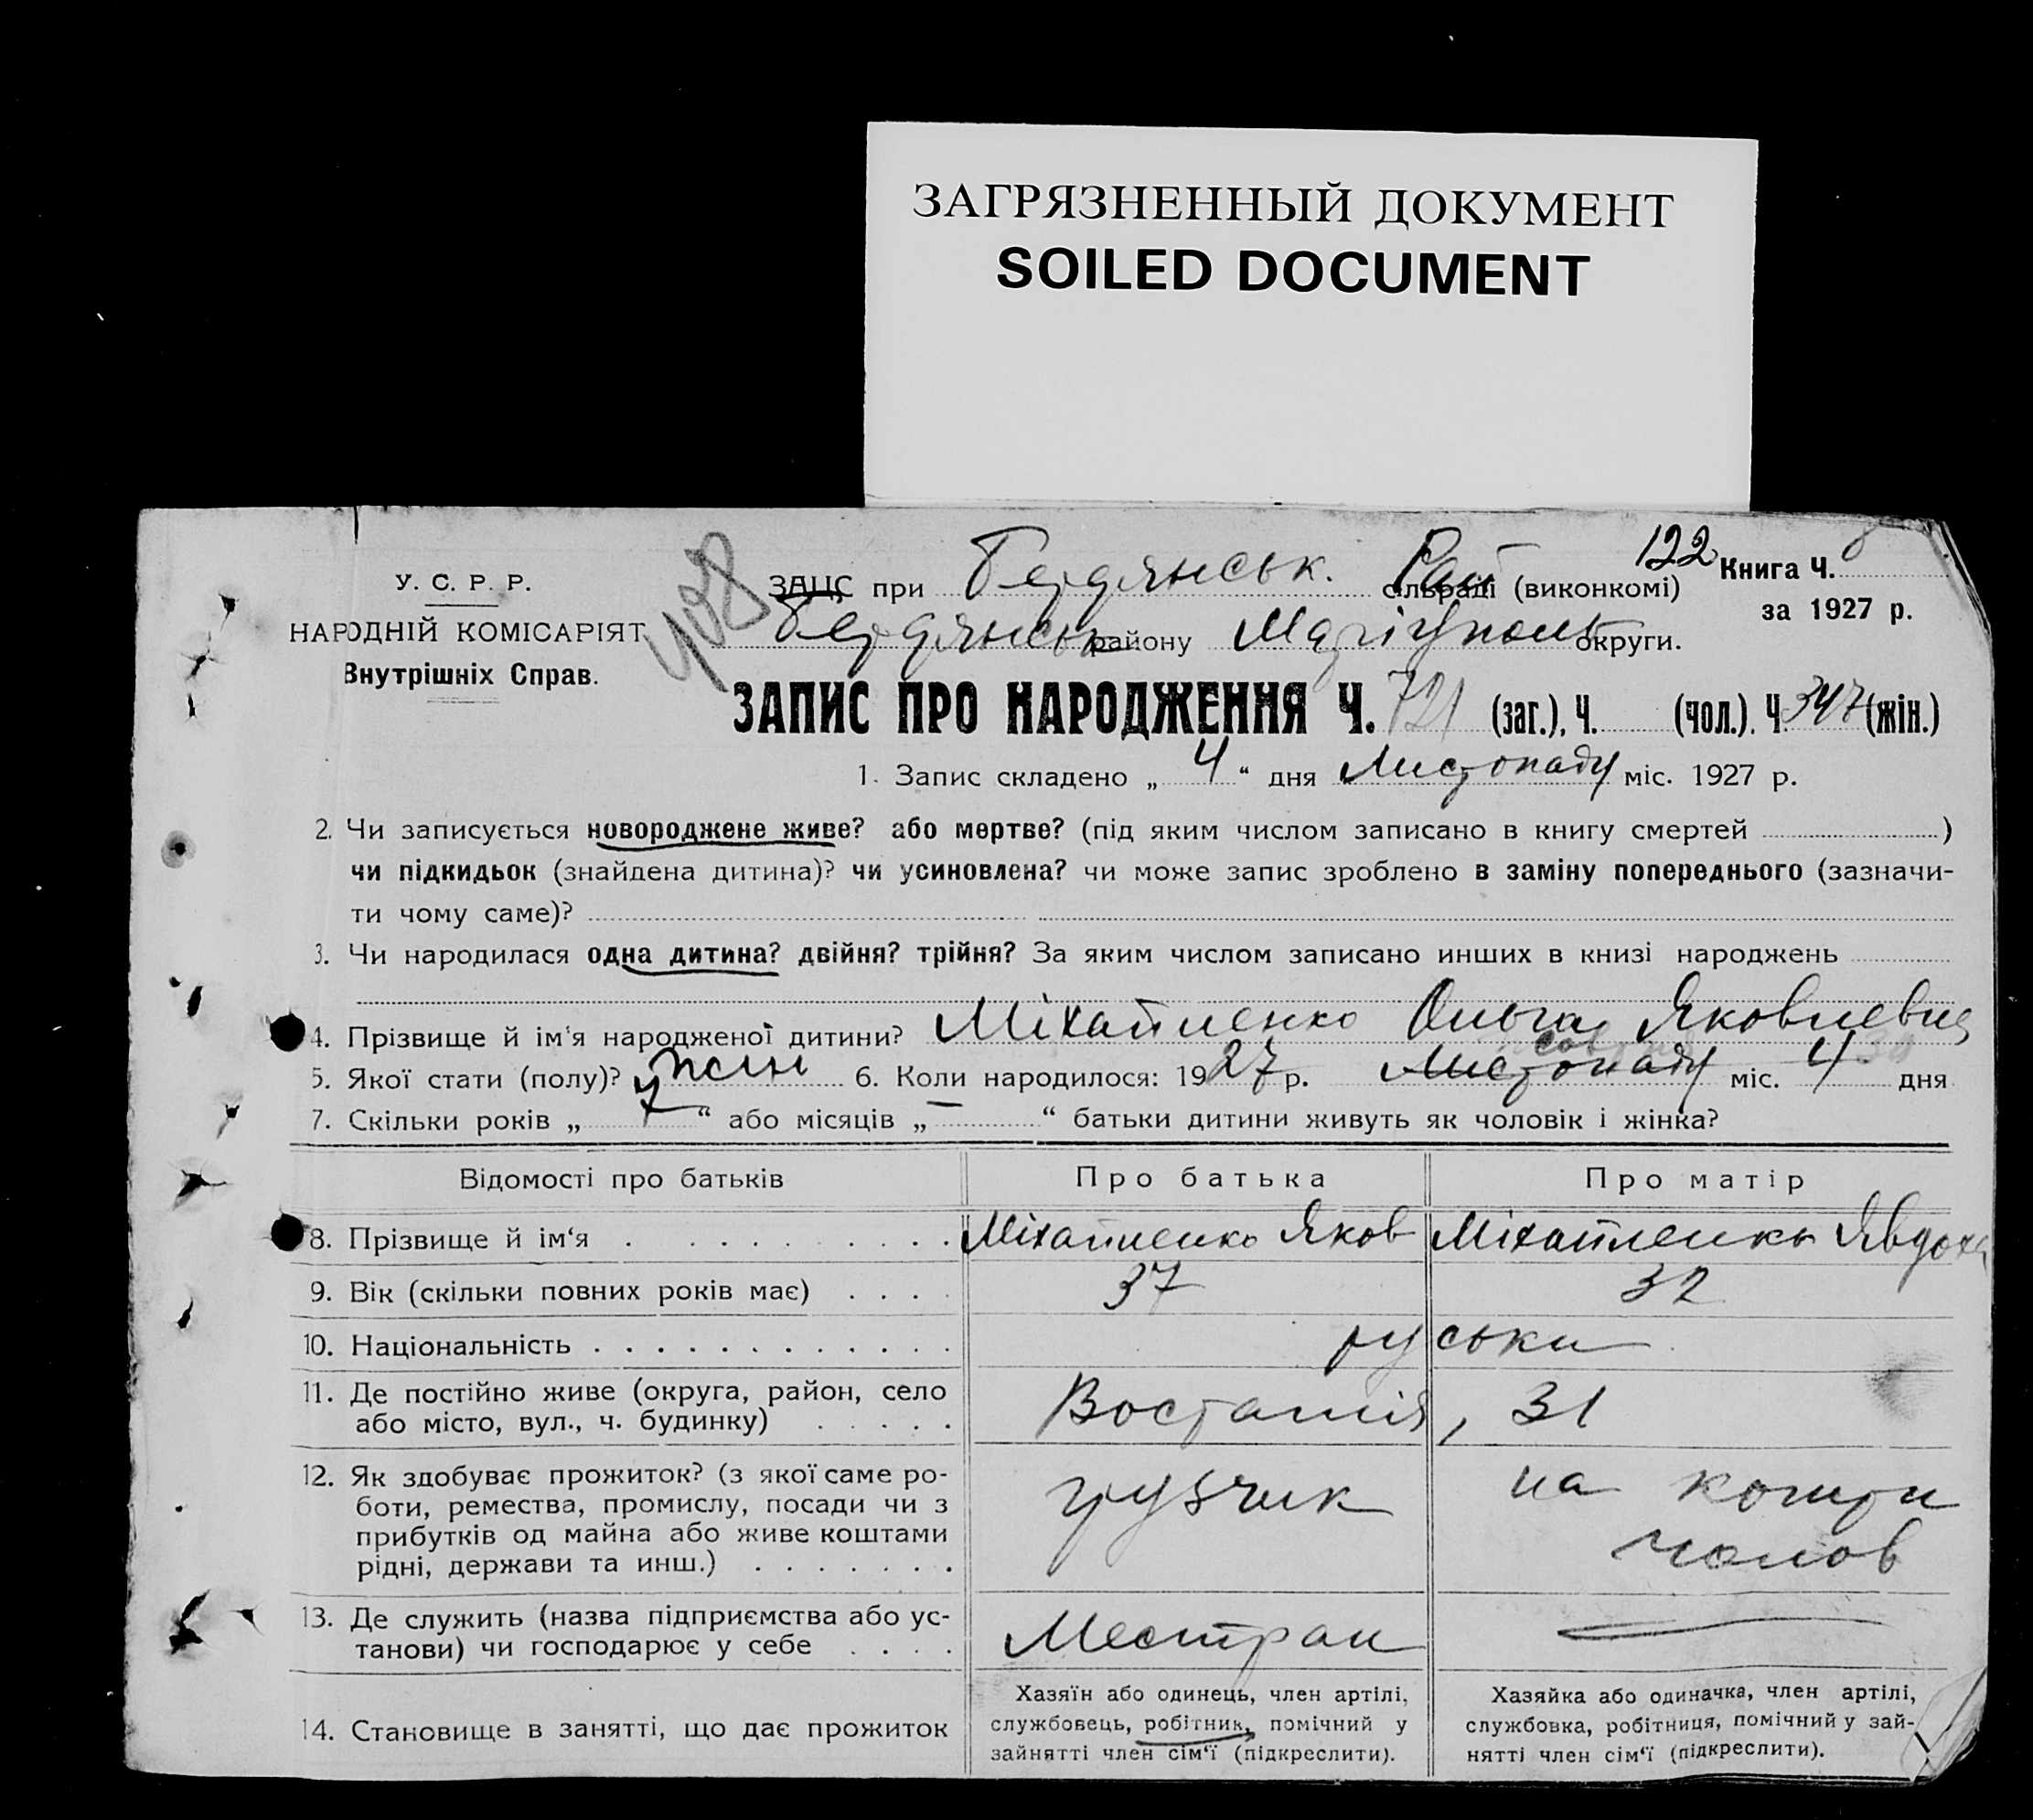 ЗАГРЯЗНЕННЫЙ ДОКУМЕНТ
SOILED DOCUMENT
У. С. Р. Р.
НАРОДНІЙ КОМІСАРІЯТ
Внутрішніх Справ.
408
122
Книга Ч.
за 1927 р.
ЗАЦС при Бердянськ. Рай сільраді (виконкомі)
Бердянськ району Маріуполь округи.
ЗАПИС ПРО НАРОДЖЕННЯ Ч. 721 (заг.), Ч. (чол.). Ч. 347 (жін.)
1. Запис складено „ 4 “ дня Листопаду міс. 1927 р.
2. Чи записується новороджене живе? або мертве? (під яким числом записано в книгу смертей )
чи підкидьок (знайдена дитина)? чи усиновлена? чи може запис зроблено в заміну попереднього (зазначи-
ти чому саме)?
3. Чи народилася одна дитина? двійня? трійня? За яким числом записано инших в книзі народжень
4. Прізвище й ім‘я народженої дитини? Міхайленко Ольга Яковлевна
5. Якої стати (полу)? жін 6. Коли народилося: 1927 р. Листопаду міс. 4 дня
7. Скільки років „ 7 “ або місяців „ — “ батьки дитини живуть як чоловік і жінка?
Відомості про батьків Про батька Про матір
8. Прізвище й ім‘я . . . . . . . . . . Міхайленко Яков Міхайленко Явдоха
9. Вік (скільки повних років має) . . . . 37 32
10. Національність . . . . . . . . . . . . . руськи
11. Де постійно живе (округа, район, село
або місто, вул., ч. будинку) . . . . . Востания, 31
12. Як здобуває прожиток? (з якої саме ро-
боти, ремества, промислу, посади чи з
прибутків од майна або живе коштами
рідні, держави та инш.) . . . . . . . грузчик на кошти
чолов
13. Де служить (назва підприємства або ус-
танови) чи господарює у себе . . . . Местран
14. Становище в занятті, що дає прожиток
Хазяїн або одинець, член артілі,
службовець, робітник, помічний у
зайнятті член сім‘ї (підкреслити).
Хазяйка або одиначка, член артілі,
службовка, робітниця, помічний у зай-
нятті член сім‘ї (підкреслити).